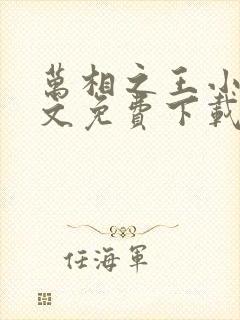 萬相之王小
文免費下載
任海軍